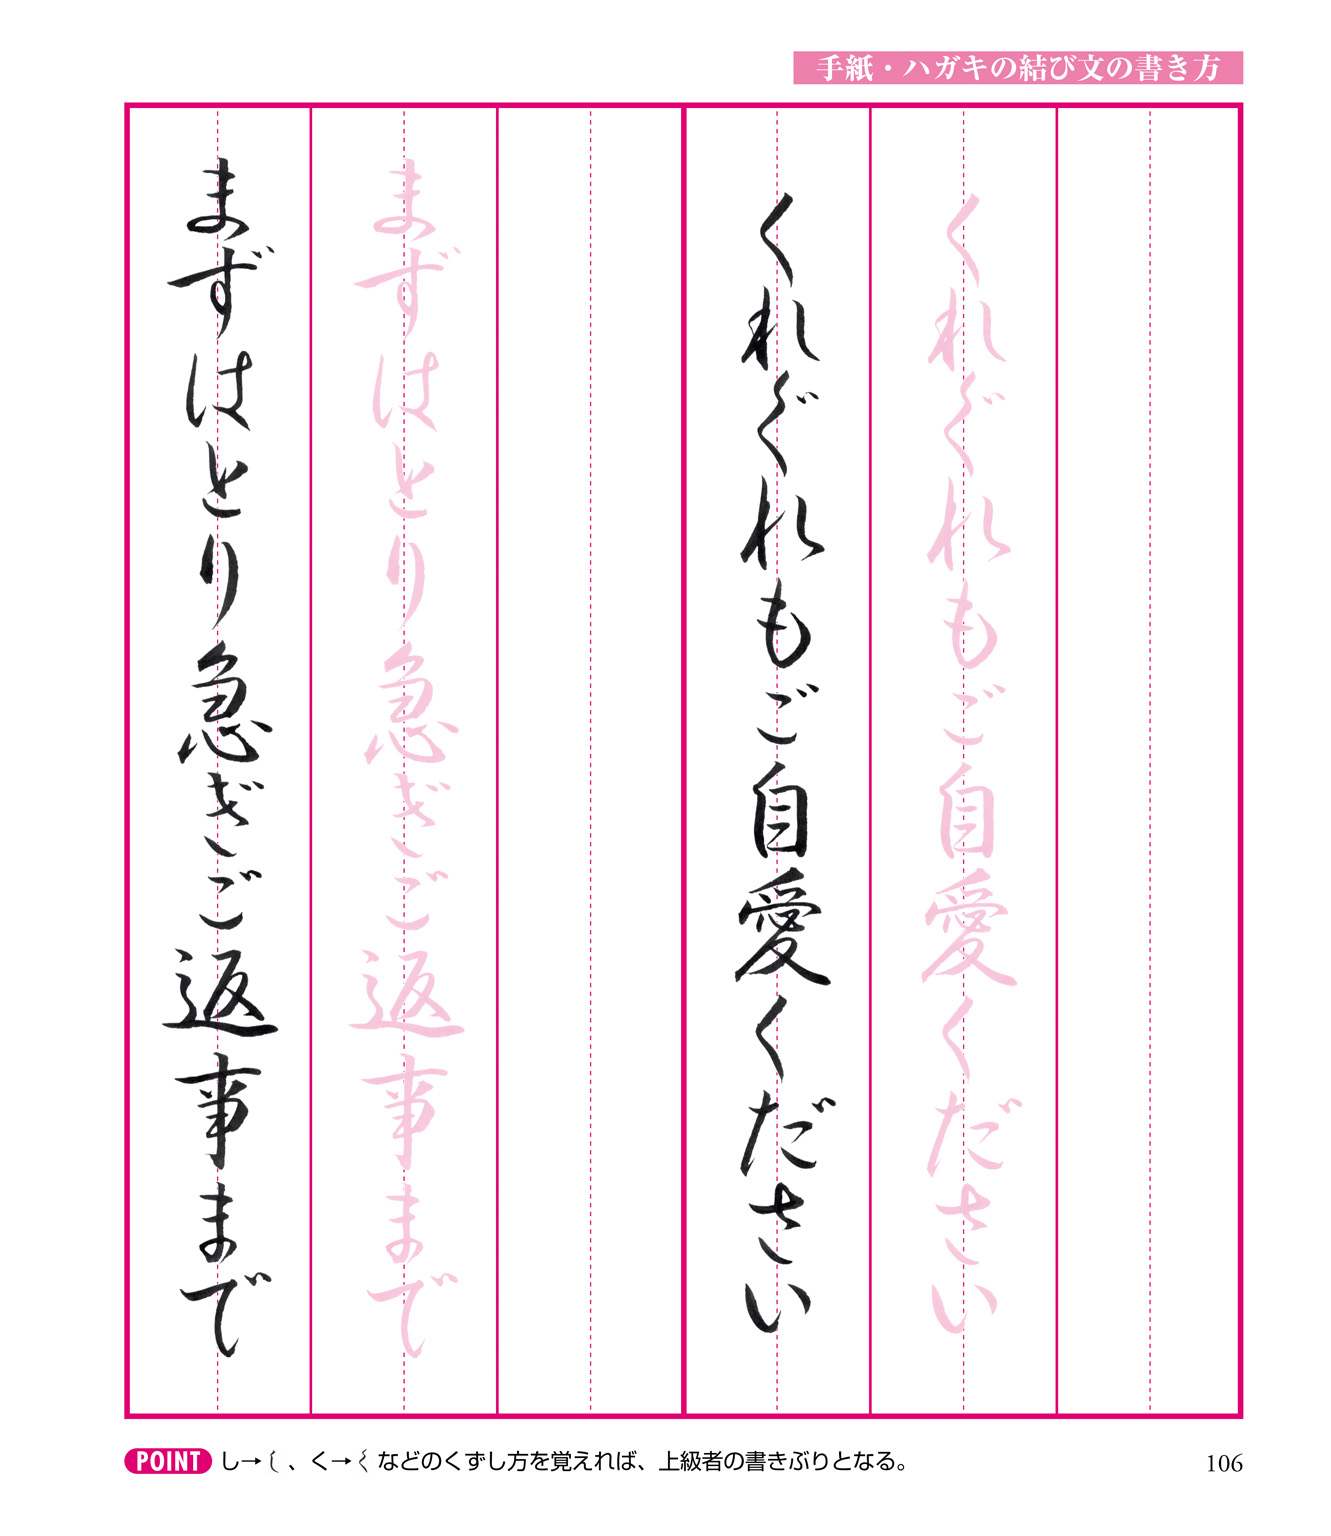 手紙・ハガキの結び文の書き方
くれぐれもご自愛ください
くれぐれもご自愛ください
まずはとり急ぎご返事まで
まずはとり急ぎご返事まで
POINT し→し、く→くなどのくずし方を覚えれば、上級者の書きぶりとなる。
106